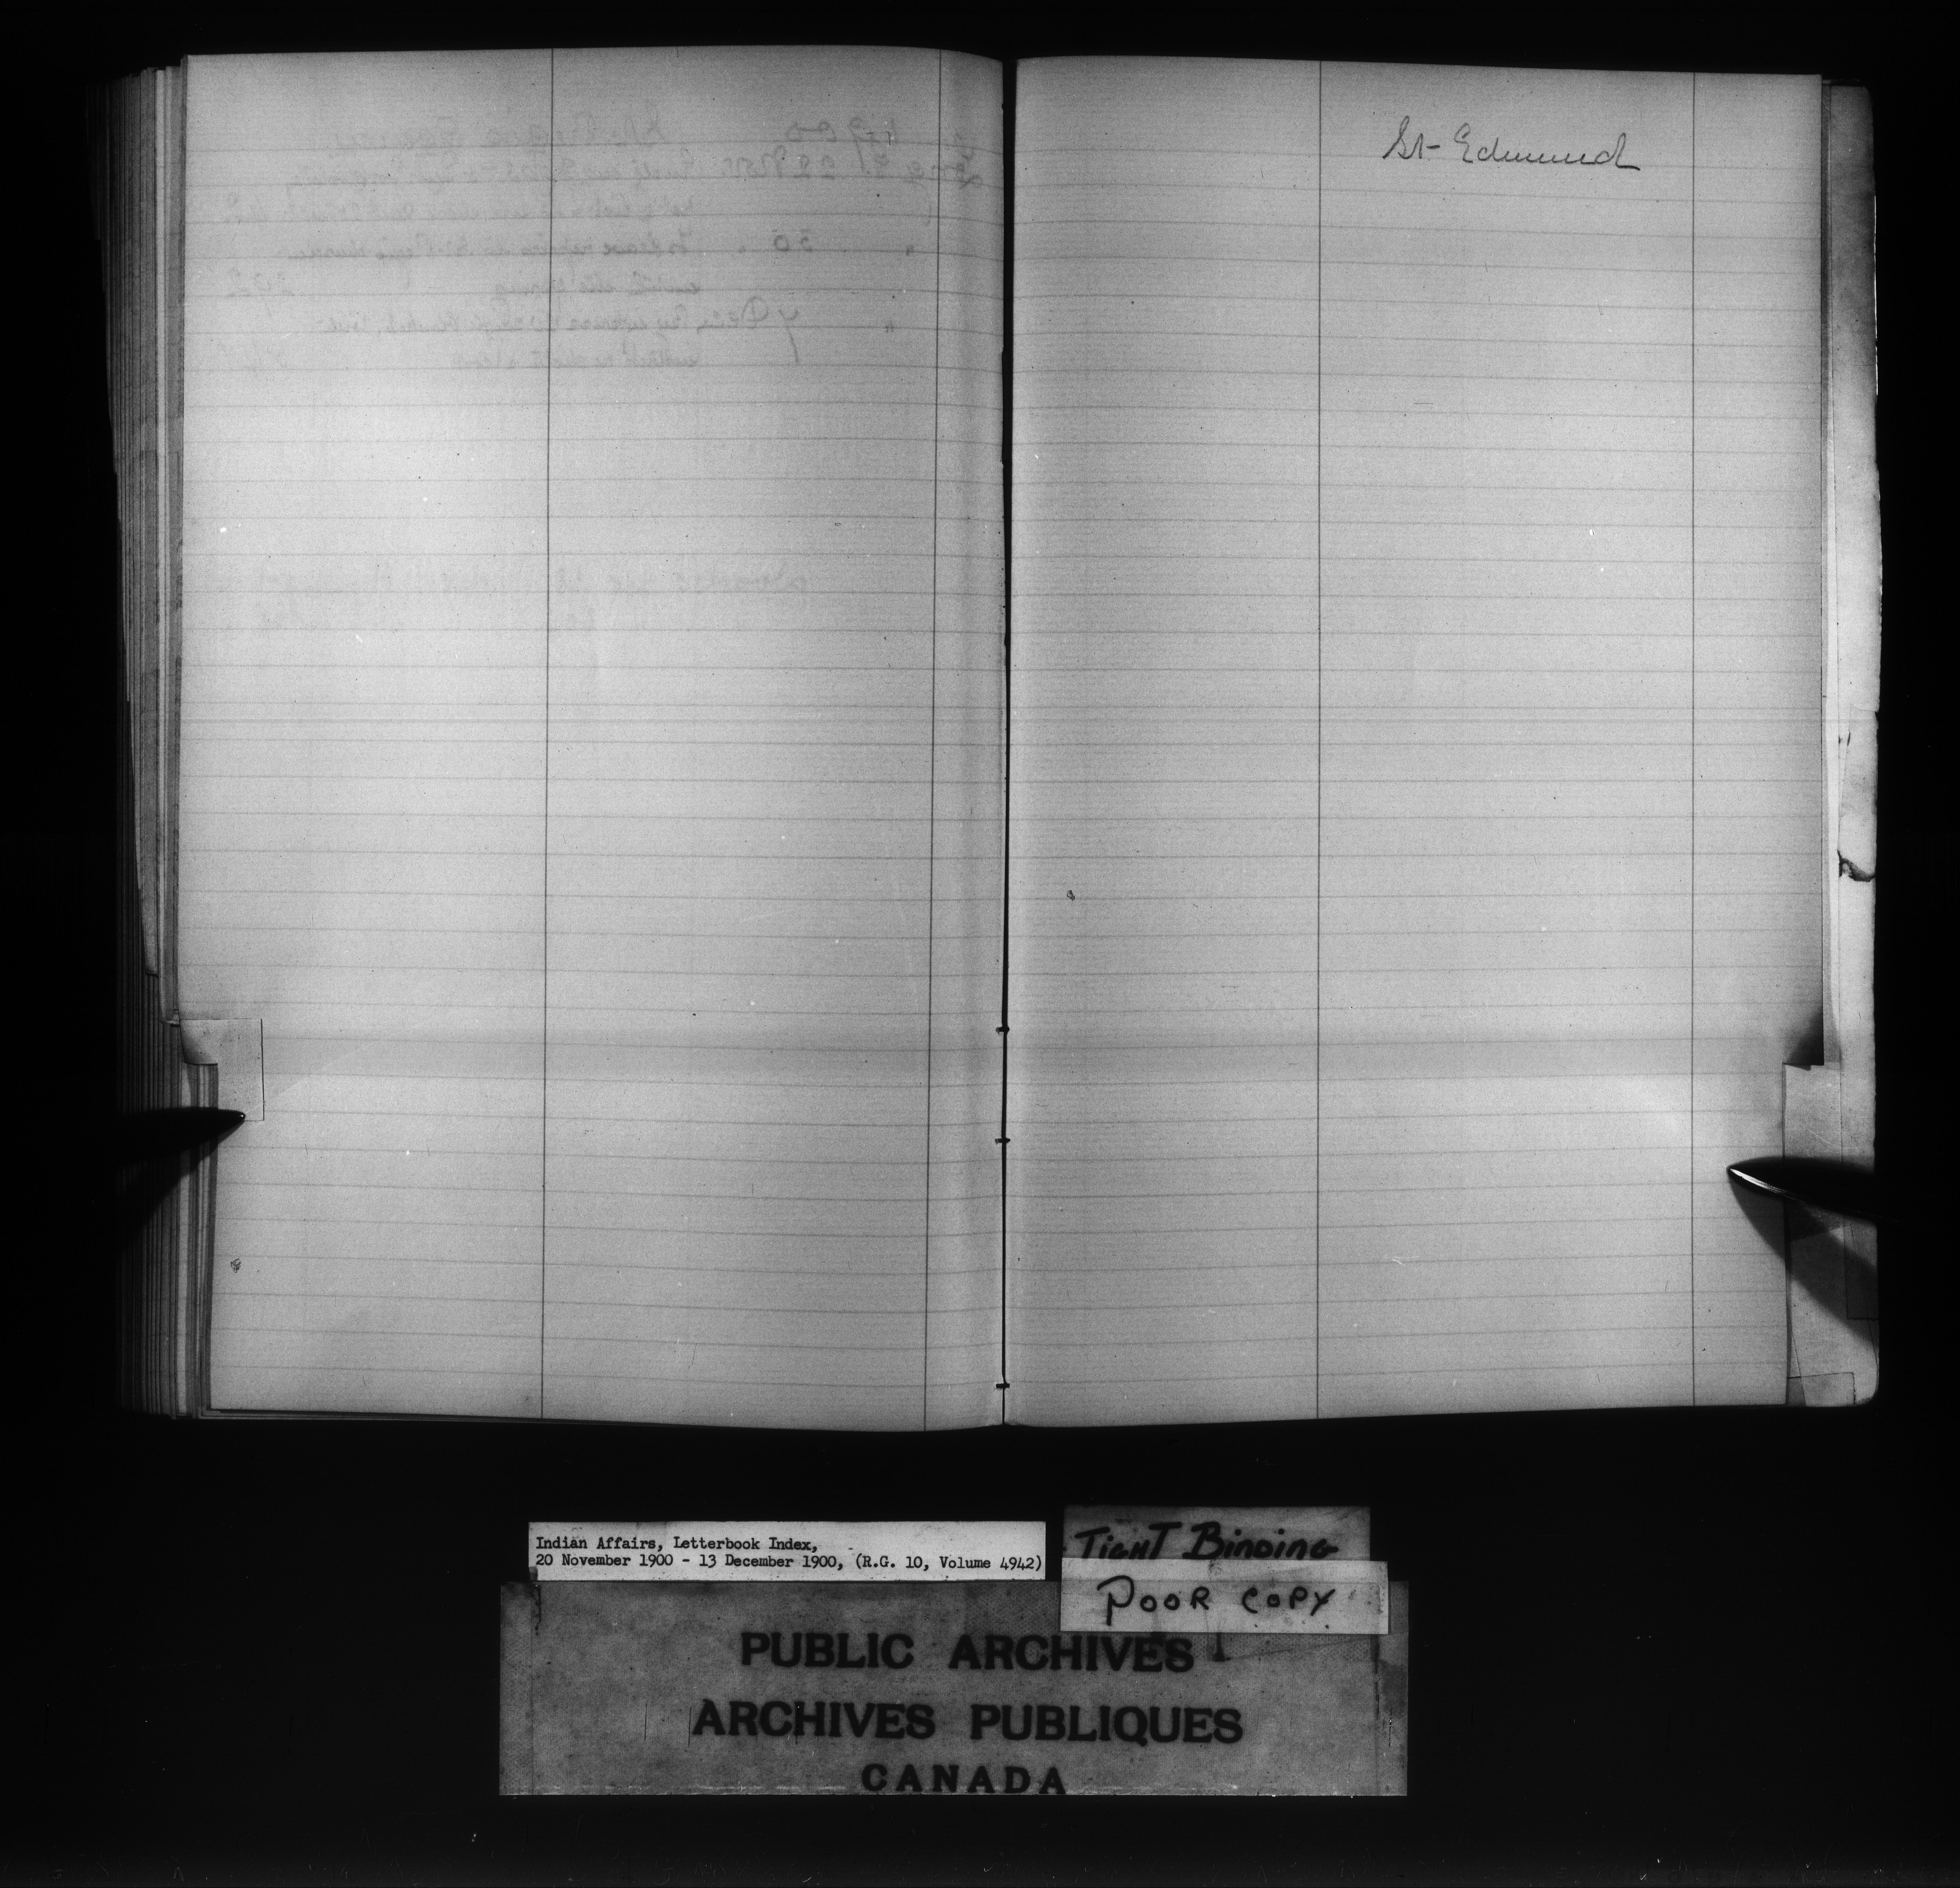 St- Edmund
Indian Affairs, Letterbook Index,
20 November 1900 - 13 December 1900, (R.G. 10, Volume 4942)
TIGHT BINDING
POOR COPY
PUBLIC ARCHIVES
ARCHIVES PUBLIQUES
CANADA